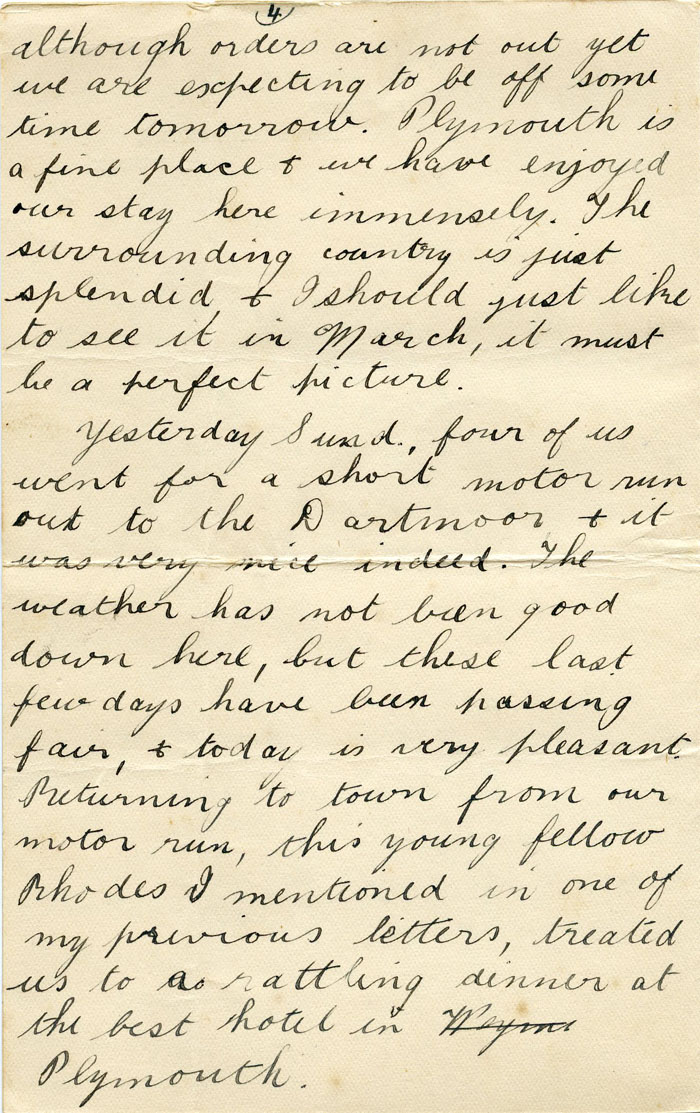 4
although orders are not out yet
we are expecting to be off some
time tomorrow. Plymouth is
a fine place & we have enjoyed
our stay here immensely. The
surrounding country is just
splendid & I should just like
to see it in March, it must
be a perfect picture.
Yesterday Sund., four of us
went for a short motor run
out to the Dartmoor & it
was very nice indeed. The
weather has not been good
down here, but these last
few days have been passing
fair, & today is very pleasant.
Returning to town from our
motor run, this young fellow
Rhodes I mentioned in one of
my previous letters, treated
us to a rattling dinner at
the best hotel in Weym
Plymouth.